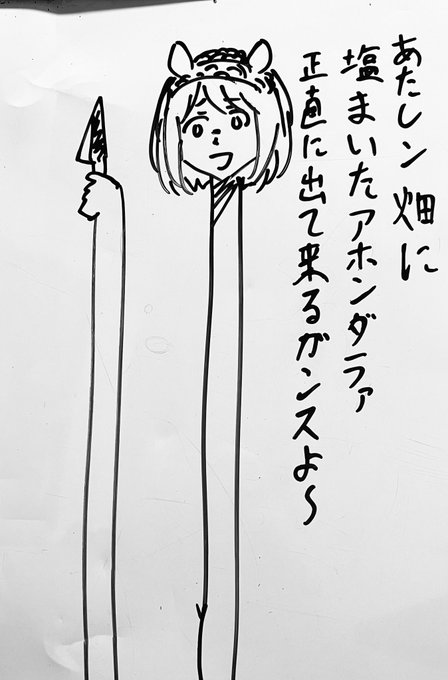 あたしン畑に
塩まいたアホンダラァ
正直に出て来るガンスよ～